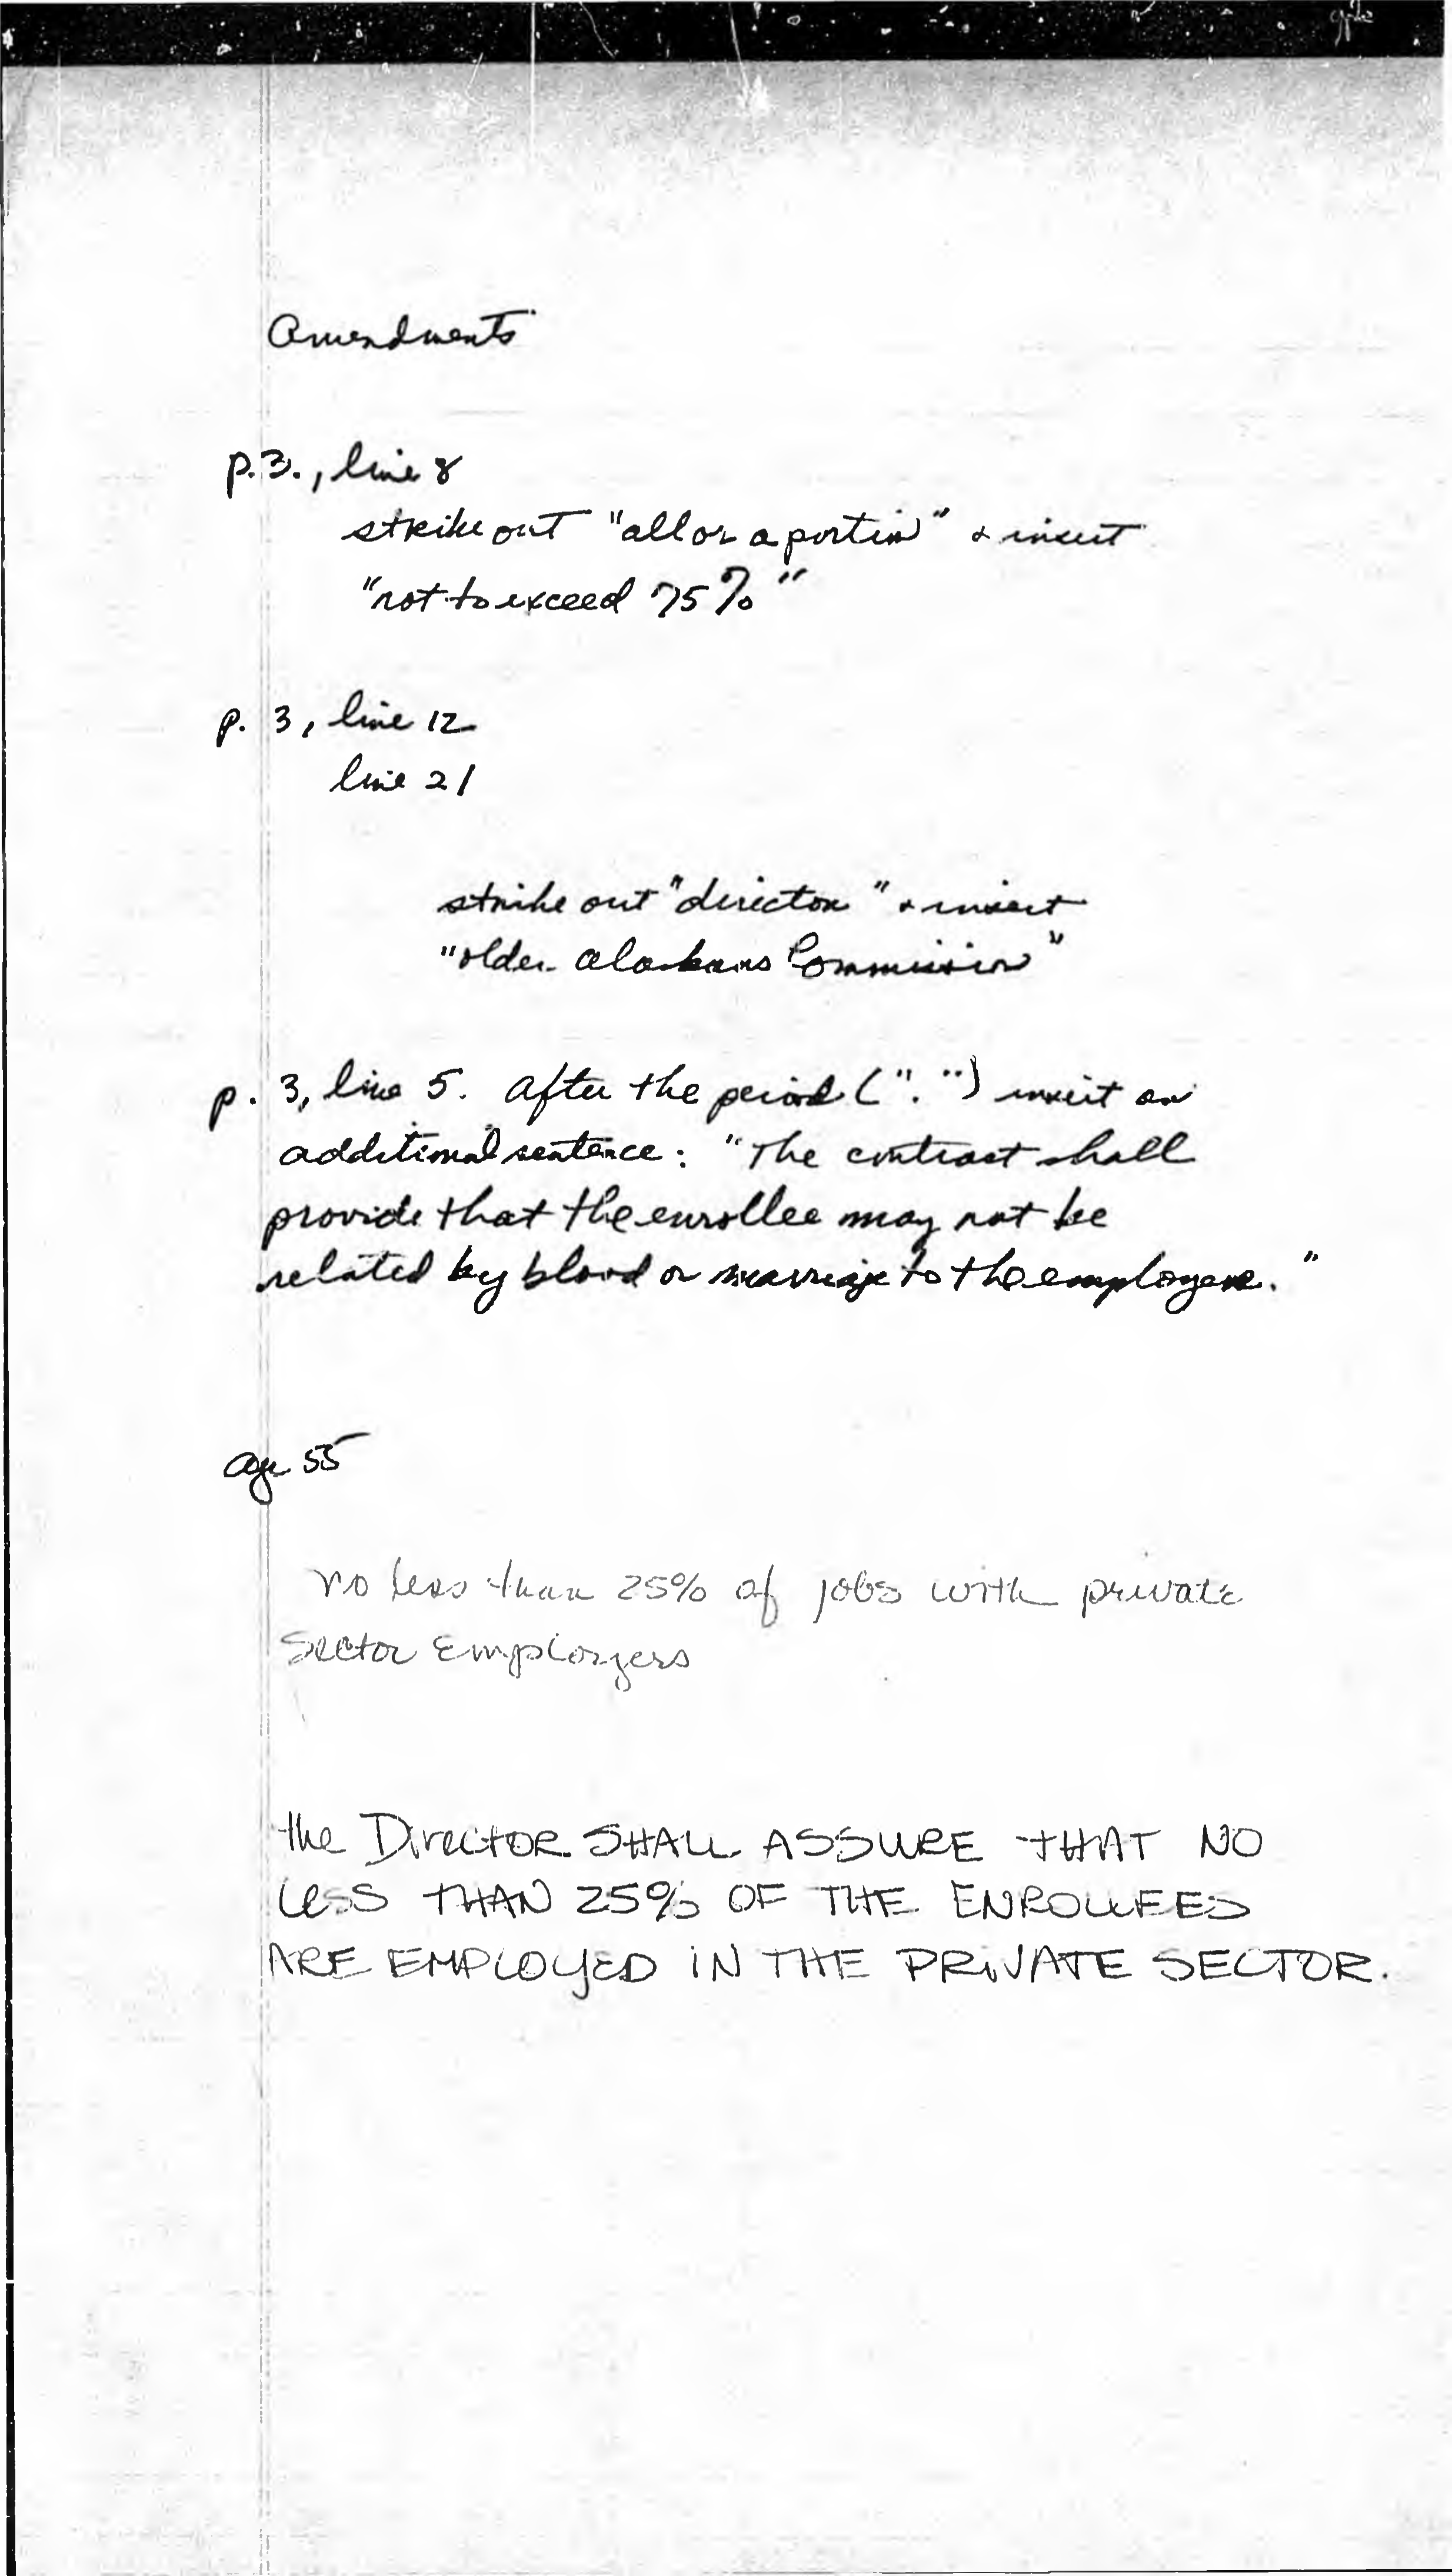 Amendments
p. 3., line 8
strike out "all or a portion" & insert
"not to exceed 75%"
p. 3, line 12
line 21
strike out "director" & insert
"older Alaskans Commission"
p. 3, line 5. After the period (".") insert an
additional sentence: "The contract shall
provide that the enrollee may not be
related by blood or marriage to the employer."
age 55
no less than 25% of jobs with private
Sector Employers
the Director SHALL ASSURE THAT NO
LESS THAN 25% OF THE ENROLLEES
ARE EMPLOYED IN THE PRIVATE SECTOR.